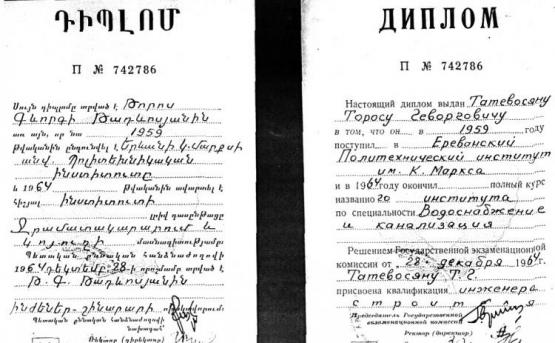 ԴԻՊԼՈՄ
П № 742786
Սույն դիպլոմը տրված է Թորոս
Գևորգի Թադևոսյանին
առ այն, որ նա 1959
թվականին ընդունվել է Երևանի Կ. Մարքսի
անվ. Պոլիտեխնիկական
ինստիտուտը
և 1964 թվականին ավարտել է
նշյալ ինստիտուտի
լրիվ դասընթացը
Ջրամատակարարում և
կոյուղի մասնագիտությամբ:
Պետական քննական հանձնաժողովի
1964 դեկտեմբ. 28-ի որոշմամբ տրված է
Թ. Գ. Թադևոսյանին
ինժեներ-շինարարի որակավորում:
Պետական քննական հանձնաժողովի
նախագահ՝
Ռեկտոր (դիրեկտոր)
ДИПЛОМ
П № 742786
Настоящий диплом выдан Татевосяну
Торосу Геворговичу
в том, что он в 1959 году
поступил в Ереванский
Политехнический институт
им. К. Маркса
и в 1964 году окончил полный курс
названного института
по специальности Водоснабжение
и канализация
Решением Государственной экзаменационной
комиссии от 28 декабря 1964 г.
Татевосяну Т. Г.
присвоена квалификация инженера
строит
Председатель Государственной
экзаменационной комиссии
Ректор (директор)